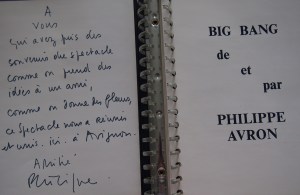 A
Vous
qui avez pris des
souvenirs du spectacle
comme on prend des
idées à un ami,
comme on donne des fleurs,
ce spectacle nous a réunis
et unis. ici. à Avignon.
Amitié
Philippe
BIG BANG
de
et
par
PHILIPPE
AVRON